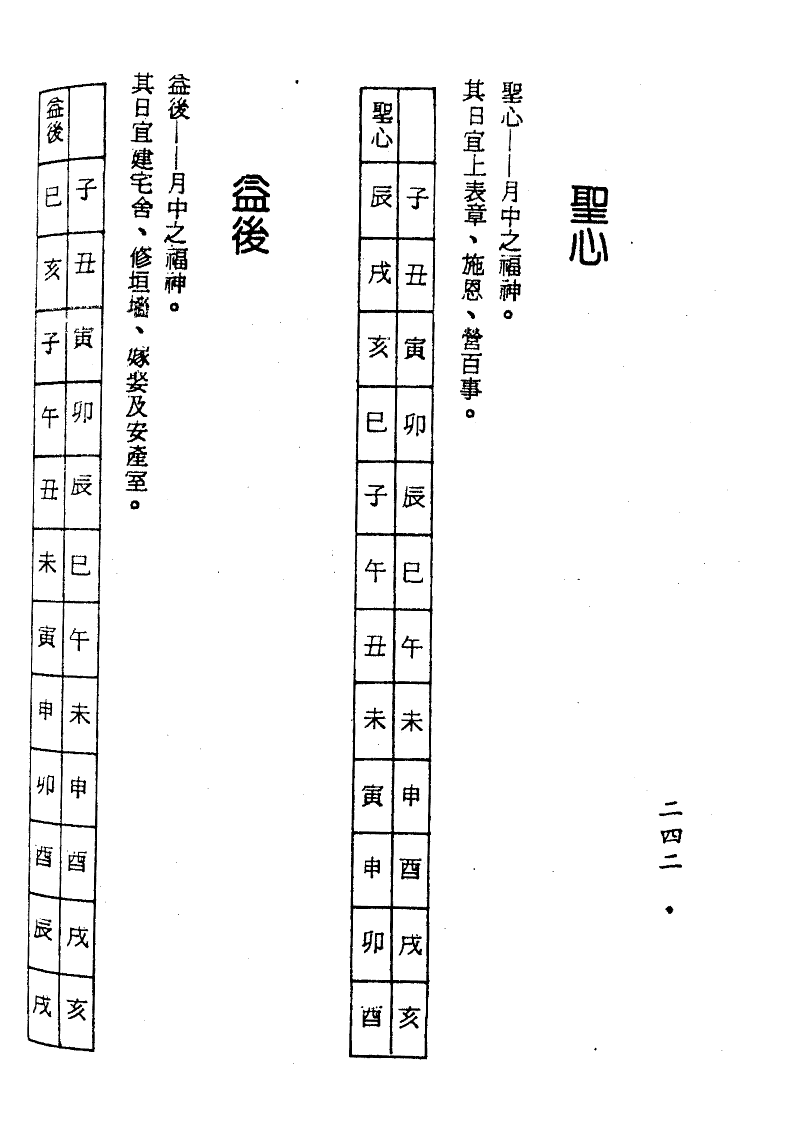 二四二
聖心
聖心——月中之福神。
其日宜上表章、施恩、營百事。
子丑寅卯辰巳午未申酉戌亥
聖心辰戌亥巳子午丑未寅申卯酉
益後
益後——月中之福神。
其日宜建宅舍、修垣墻、嫁娶及安產室。
子丑寅卯辰巳午未申酉戌亥
益後巳亥子午丑未寅申卯酉辰戌